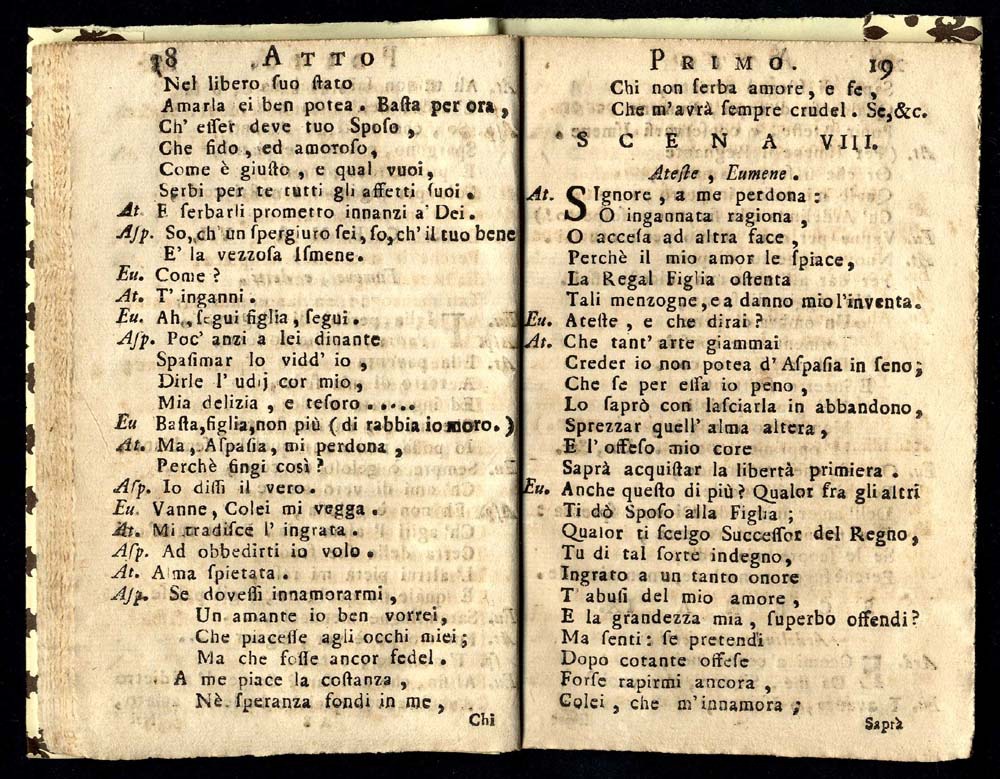 18 ATTO
Nel libero ſuo ſtato
Amarla ei ben potea. Baſta per ora,
Ch' eſſer deve tuo Spoſo,
Che fido, ed amoroſo,
Come è giuſto, e qual vuoi,
Serbi per te tutti gli affetti ſuoi.
At. E ſerbarli prometto innanzi a' Dei.
Aſp. So, ch' un ſpergiuro ſei, ſo, ch' il tuo bene
E' la vezzoſa Iſmene.
Eu. Come?
At. T' inganni.
Eu. Ah, ſegui figlia, ſegui.
Aſp. Poc' anzi a lei dinante
Spaſimar lo vidd' io,
Dirle l' udij cor mio,
Mia delizia, e teſoro.....
Eu Baſta, figlia, non più (di rabbia io moro.)
At. Ma, Aſpaſia, mi perdona,
Perchè fingi così?
Aſp. Io diſſi il vero.
Eu. Vanne, Colei mi vegga.
At. Mi tradiſce l' ingrata.
Aſp. Ad obbedirti io volo.
At. Alma ſpietata.
Aſp. Se doveſſi innamorarmi,
Un amante io ben vorrei,
Che piaceſſe agli occhi miei;
Ma che foſſe ancor fedel.
A me piace la coſtanza,
Nè ſperanza fondi in me,
Chi
PRIMO. 19
Chi non ſerba amore, e fe,
Che m'avrà ſempre crudel. Se,&c.
SCENA VIII.
Ateſte, Eumene.
At. SIgnore, a me perdona:
O ingannata ragiona,
O acceſa ad altra face,
Perchè il mio amor le ſpiace,
La Regal Figlia oſtenta
Tali menzogne, e a danno mio l'inventa.
Eu. Ateſte, e che dirai?
At. Che tant' arte giammai
Creder io non potea d' Aſpaſia in ſeno;
Che ſe per eſſa io peno,
Lo ſaprò con laſciarla in abbandono,
Sprezzar quell' alma altera,
E l' offeſo mio core
Saprà acquiſtar la libertà primiera.
Eu. Anche queſto di più? Qualor fra gli altri
Ti dò Spoſo alla Figlia;
Qualor ti ſcelgo Succeſſor del Regno,
Tu di tal ſorte indegno,
Ingrato a un tanto onore
T' abuſi del mio amore,
E la grandezza mia, ſuperbo offendi?
Ma ſenti: ſe pretendi
Dopo cotante offeſe
Forſe rapirmi ancora,
Colei, che m'innamora;
Saprà